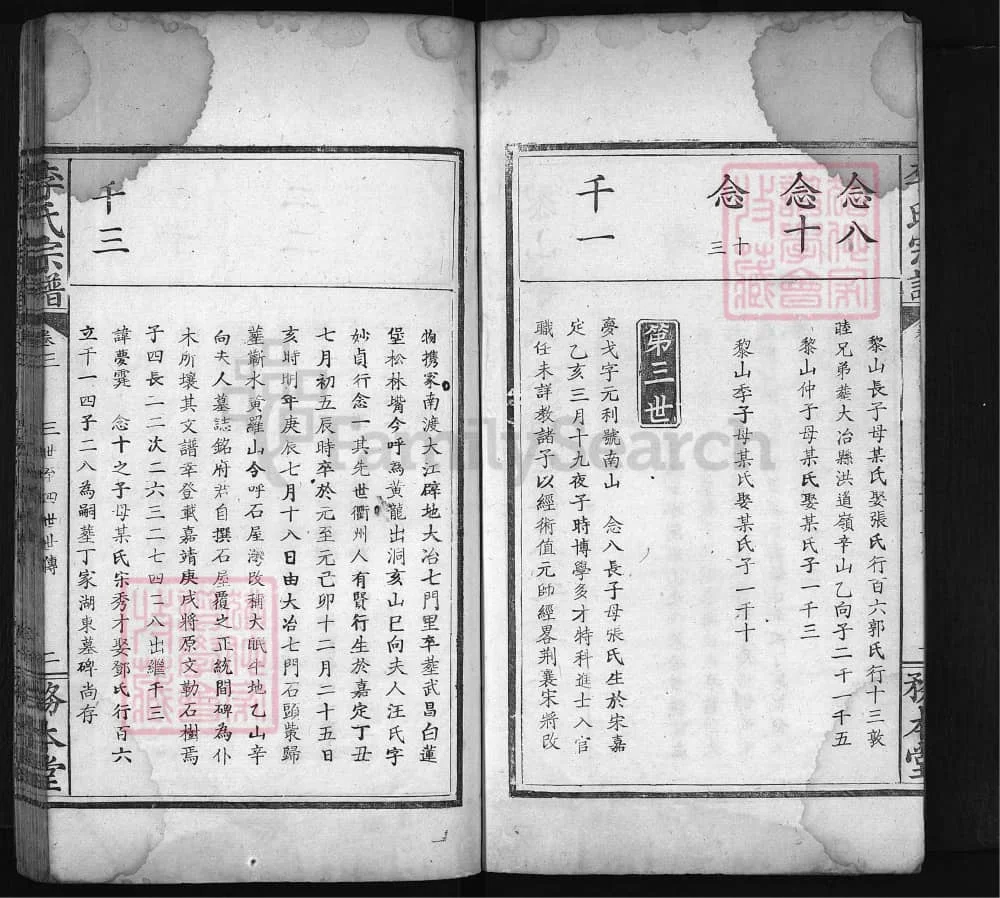 念八
黎山長子母某氏娶張氏行百六郭氏行十三敦
睦兄弟塟大冶縣洪道嶺辛山乙向子二千一千五
念十
黎山仲子母某氏娶某氏子一千三
念
十三
黎山季子母某氏娶某氏子一千十
第三世
千一
夢戈字元利號南山 念八長子母張氏生於宋嘉
定乙亥三月十九夜子時博學多才特科進士入官
職任未詳教諸子以經術值元帥經畧荆襄宋將改
物携家南渡大江辟地大冶七門里卒塟武昌白蓮
堡松林嘴今呼為黃龍出洞亥山巳向夫人汪氏字
妙貞行念一其先世衢州人有賢行生於嘉定丁丑
七月初五辰時卒於元至元己卯十二月二十五日
亥時明年庚辰七月十八日由大冶七門石頭棠歸
塟蘄水黃羅山今呼石屋灣改稱大眠牛地乙山辛
向夫人墓誌銘府君自撰石屋覆之正統間碑為仆
木所壞其文譜幸登載嘉靖庚戌將原文勒石樹焉
子四長二二次二六三二七四二八出繼千三
千三
諱慶霆 念十之子母某氏宋秀才娶鄧氏行百六
立千一四子二八為嗣塟丁家湖東墓碑尚存
李氏宗譜
卷二
三世至四世世傳
二務本堂
FamilySearch